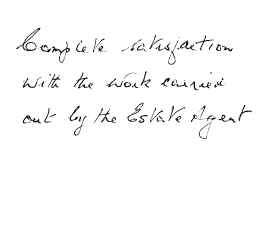 Complete satisfaction
with the work carried
out by the Estate Agent